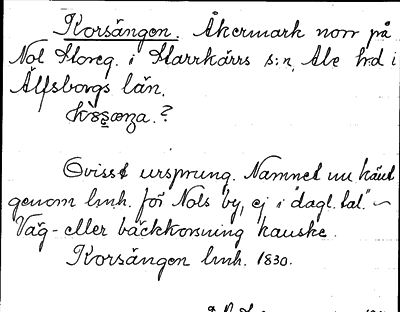 Korsängen. Åkermark norr på
Nol Storeg. i Starrkärrs s:n, Ale hrd i
Älfsborgs län.
Ovisst ursprung. Namnet nu känt
genom lmh. för Nols by, ej i "dagl. tal." ~
Väg- eller bäckkorsning kanske.
Korsängen lmh. 1830.